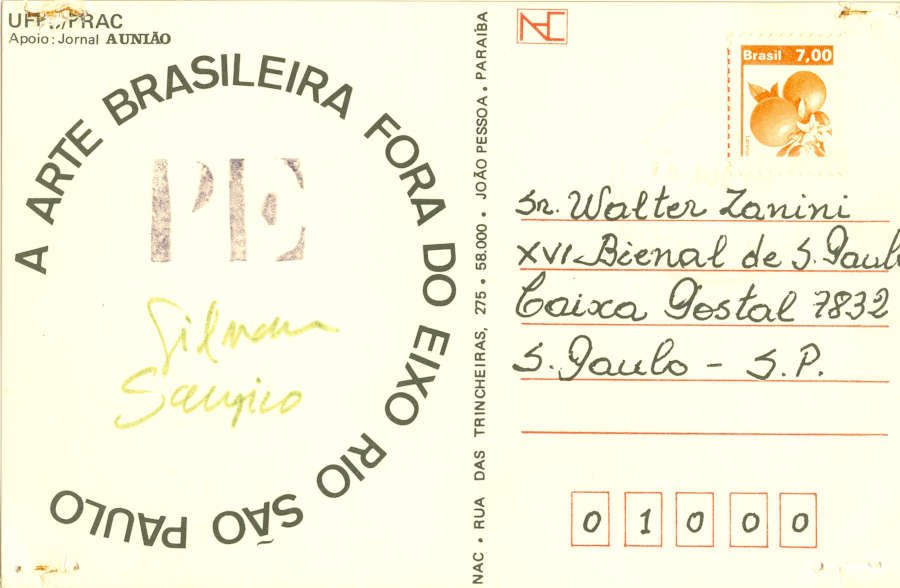 UFPb/PRAC
Apoio: Jornal A UNIÃO
A ARTE BRASILEIRA FORA DO EIXO RIO SÃO PAULO
PE
Silvana
NAC • RUA DAS TRINCHEIRAS, 275 • 58.000 • JOÃO PESSOA • PARAÍBA
NAC
Brasil 7,00
Sr. Walter Zanini
XVI Bienal de S. Paulo
Caixa Postal 7832
S. Paulo - S.P.
0 1 0 0 0